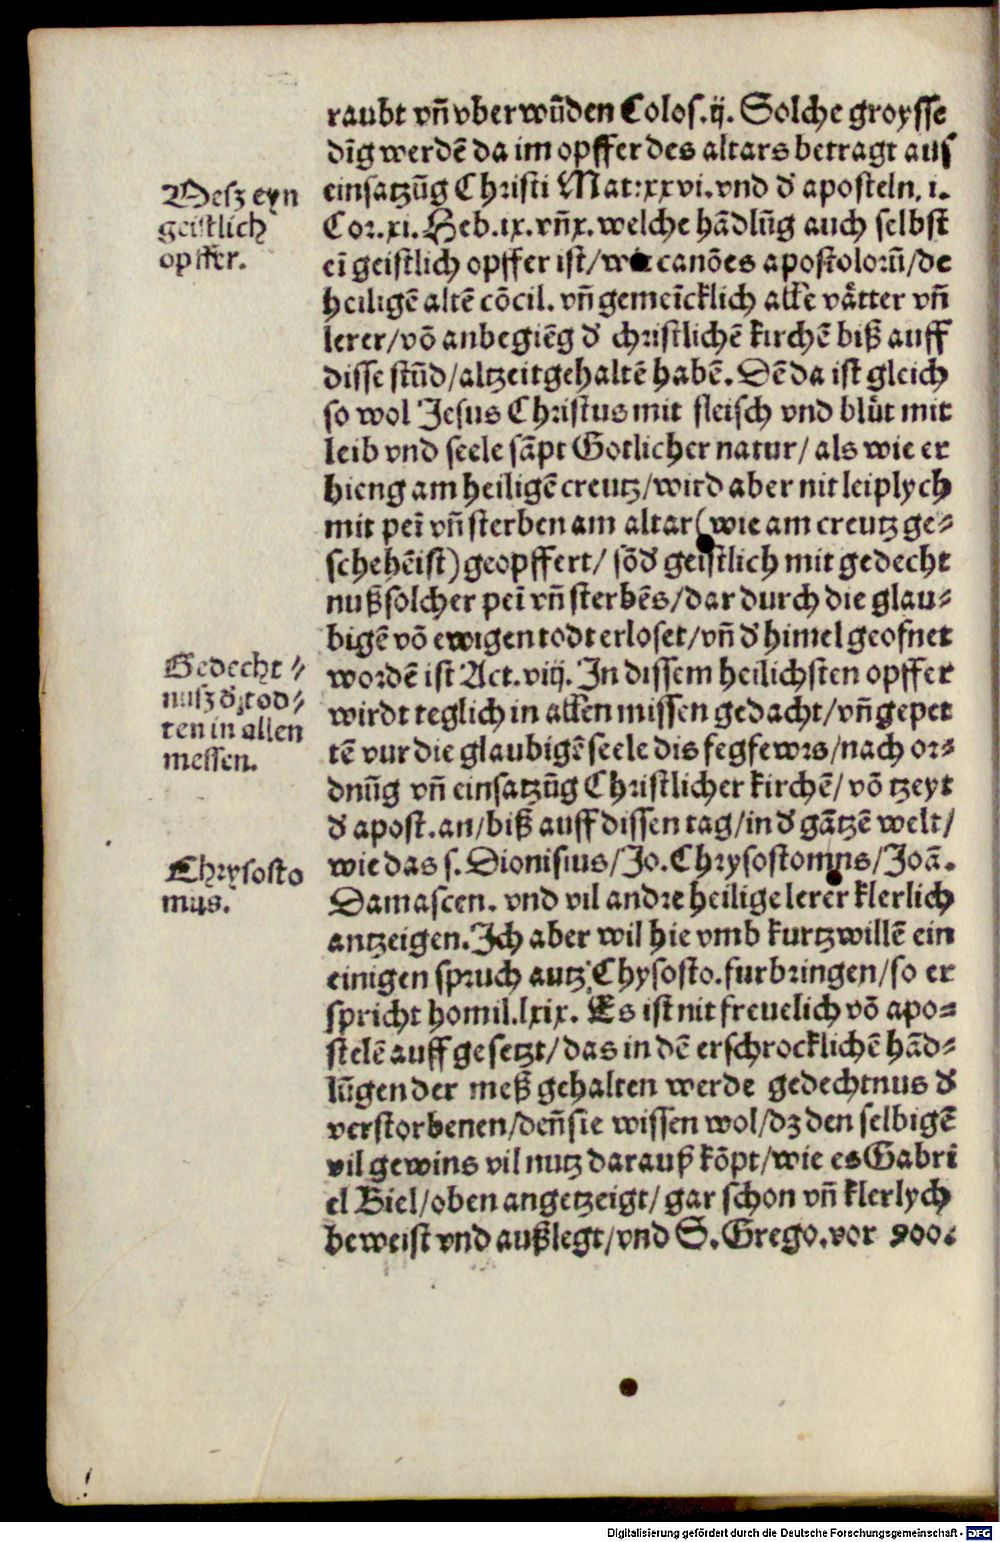 raubt vñ vberwūden Colos.ij. Solche groysse
dīg werdē da im opffer des altars betragt aus
Mesz eyn
geistlich
opffer.
einsatzūg Christi Mat:xxvi.vnd d' aposteln, i.
Cor.xi.Heb.ix.vñx.welche hādlūg auch selbst
eī geistlich opffer ist/wie canōes apostolorū/de
heiligē altē cōcil. vñ gemeīcklich alle våtter vñ
lerer/vō anbegiēg d' christlichē kirchē biß auff
disse stūd/altzeit gehaltē habē. Dē da ist gleich
so wol Jesus Christus mit fleisch vnd blůt mit
leib vnd seele sāpt Gotlicher natur/ als wie er
hieng am heiligē creutz/wird aber nit leiplych
mit peī vñ sterben am altar (wie am creutz ge⸗
schehēist) geopffert/ sōd' geistlich mit gedecht
nuß solcher peī vñ sterbēs/dar durch die glau⸗
bigē vō ewigen todt erloset/vñ d' himel geofnet
Gedecht⸗
nusz d' tod⸗
ten in allen
messen.
wordē ist Act.viij. In dissem heilichsten opffer
wirdt teglich in allen missen gedacht/vñ gepet
tē vur die glaubigē seele dis fegfewrs/nach or⸗
dnūg vñ einsatzūg Christlicher kirchē/ vō tzeyt
d' apost.an/biß auff dissen tag/in d' gātzē welt/
Chrysosto
mus.
wie das s. Dionisius/Jo.Chrysostomns/Joā.
Damascen. vnd vil andre heilige lerer klerlich
antzeigen. Ich aber wil hie vmb kurtzwillē ein
einigen spruch autz Chysosto.furbringen/so er
spricht homil.lxix. Es ist nit freuelich vō apo⸗
stelē auff gesetzt/das in dē erschrocklichē hād⸗
lūgen der meß gehalten werde gedechtnus d'
verstorbenen/deñ sie wissen wol/dz den selbigē
vil gewins vil nutz darauß kōpt/wie es Gabri
el Biel/oben angetzeigt/ gar schon vñ klerlych
beweist vnd außlegt/vnd S. Grego.vor 900.
Digitalisierung gefördert durch die Deutsche Forschungsgemeinschaft - DFG